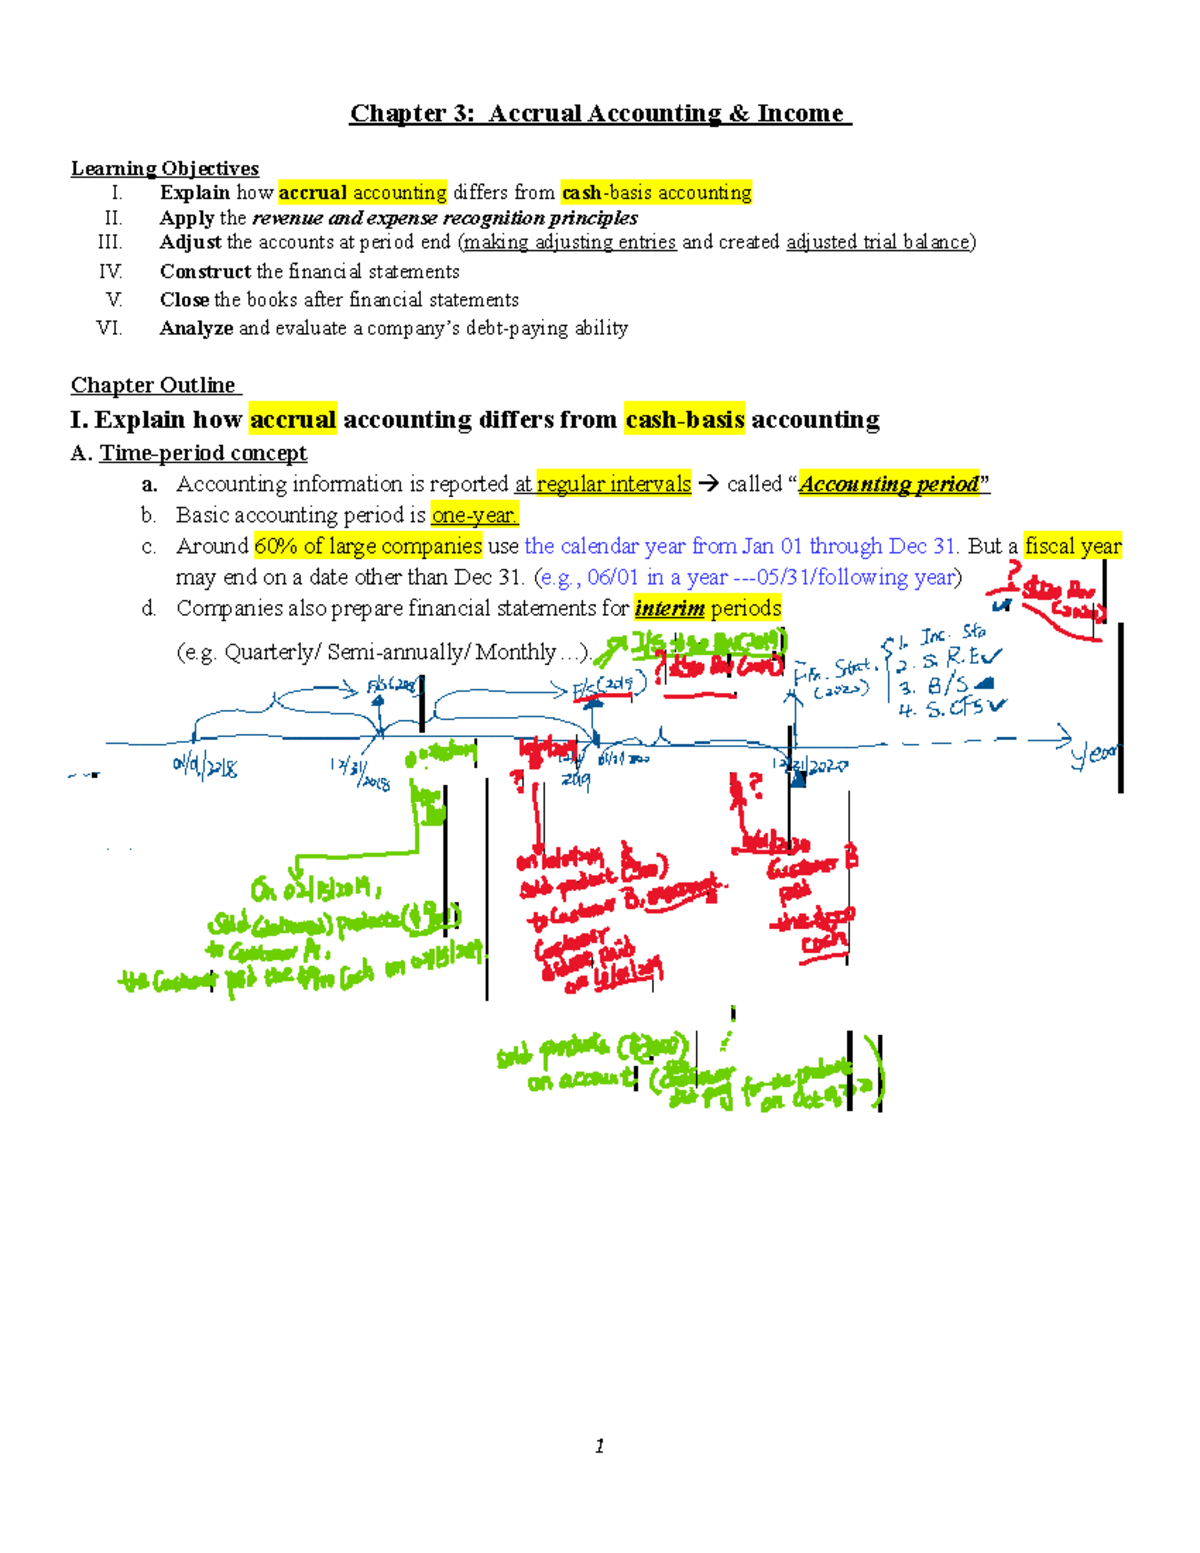 Chapter 3: Accrual Accounting & Income
Learning Objectives
I. Explain how accrual accounting differs from cash-basis accounting
II. Apply the revenue and expense recognition principles
III. Adjust the accounts at period end (making adjusting entries and created adjusted trial balance)
IV. Construct the financial statements
V. Close the books after financial statements
VI. Analyze and evaluate a company's debt-paying ability
Chapter Outline
I. Explain how accrual accounting differs from cash-basis accounting
A. Time-period concept
a. Accounting information is reported at regular intervals → called “Accounting period”
b. Basic accounting period is one-year.
c. Around 60% of large companies use the calendar year from Jan 01 through Dec 31. But a fiscal year
may end on a date other than Dec 31. (e.g., 06/01 in a year ---05/31/following year)
d. Companies also prepare financial statements for interim periods
(e.g. Quarterly/ Semi-annually/ Monthly…).
?
1. Inc. Sta
2. S. R.E ✓
3. B/S
4. S. CFS ✓
Fin. Stat.
(2020)
F/S (2019)
?
01/01/2018
12/31/2018
2019
12/31/2020
year
?
?
On 02/15/2019,
Sold (delivered) products
to Customer A.
the Customer paid the Cash on 02/15/2019.
sold product
to Customer B,
Customer
paid
on
Customer B
paid
cash
sold products
on account (Customer
for the products
on Oct
1